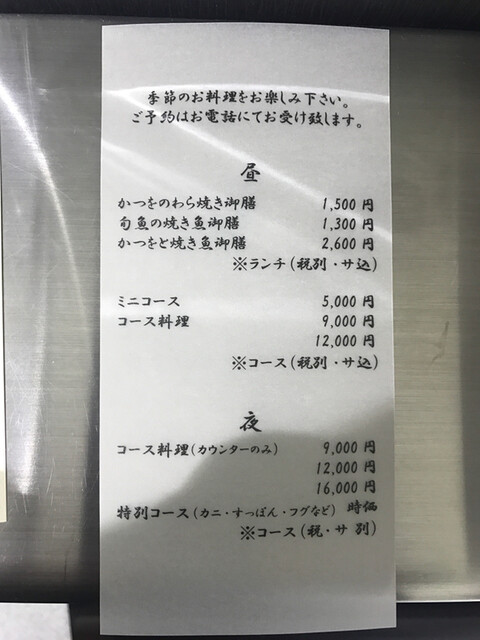 季節のお料理をお楽しみ下さい。
ご予約はお電話にてお受け致します。
昼
かつをのわら焼き御膳 1,500 円
旬魚の焼き魚御膳 1,300 円
かつをと焼き魚御膳 2,600 円
※ランチ(税別・サ込)
ミニコース 5,000 円
コース料理 9,000 円
12,000 円
※コース(税別・サ込)
夜
コース料理(カウンターのみ) 9,000 円
12,000 円
16,000 円
特別コース(カニ・すっぽん・フグなど) 時価
※コース(税・サ 別)